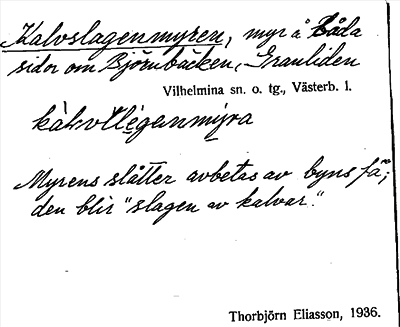 Kalvslagenmyren, myr å båda
sidor om Björnbäcken, Granliden
Vilhelmina sn. o. tg., Västerb. l.
Myrens slåtter avbetas av byns fä;
den blir "slagen av kalvar."
Thorbjörn Eliasson, 1936.